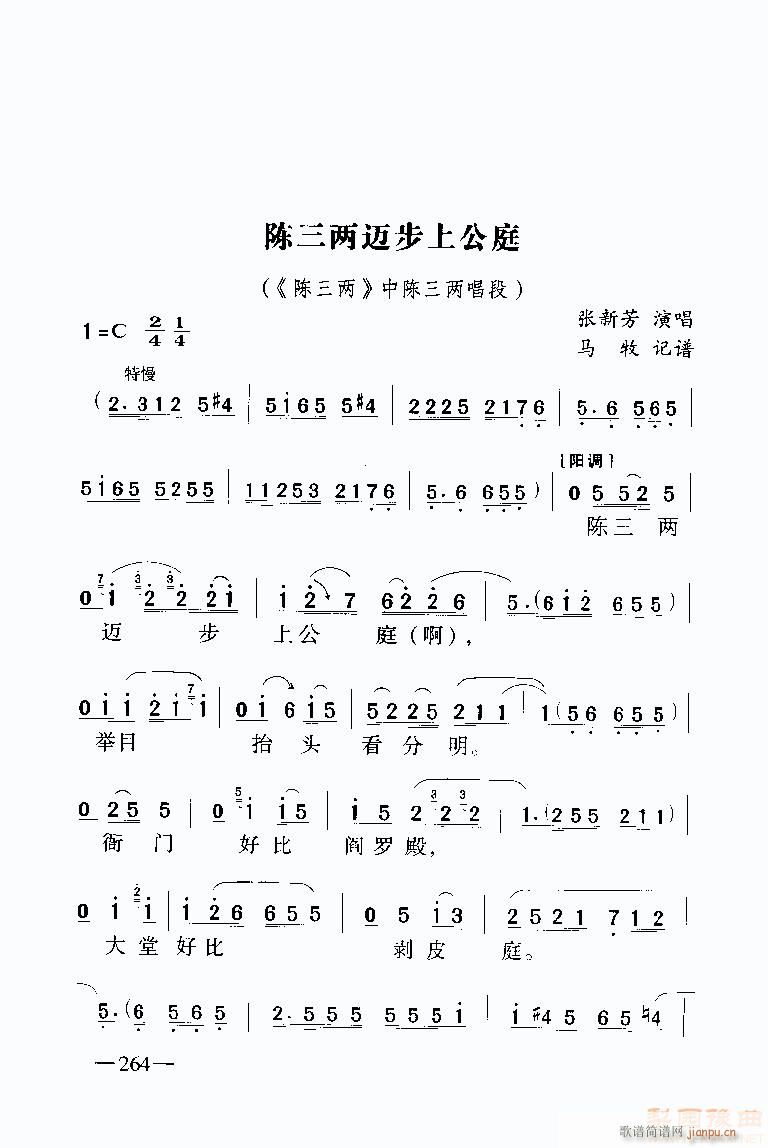 陈三两迈步上公庭
(《陈三两》中陈三两唱段)
1=C 2/4 1/4
张新芳 演唱
马 牧 记谱
特慢
(2.312 5#4 | 5165 5#4 | 2225 2176 | 5.6 565 |
[阳调]
5165 5255 | 11253 2176 | 5.6 655) | 0 5 525 |
陈三 两
0 1 2 2 21 | 1 2 7 62 26 | 5.(612 655) |
迈 步 上公 庭(啊),
011 21 1 | 01 6 15 | 5225 211 | 1(56 655) |
举目 抬 头 看 分 明。
0 25 5 | 0 1 15 | 15 2 2 2 | 1.(255 211) |
衙 门 好比 阎罗殿,
0 1 1 | 126 655 | 0 5 13 | 2521 712 |
大堂 好比 剥皮 庭。
5.(6 565 | 2.555 5551 | 1#45 65 4 |
—264—
梨园豫曲
歌谱简谱网
jianpu.cn